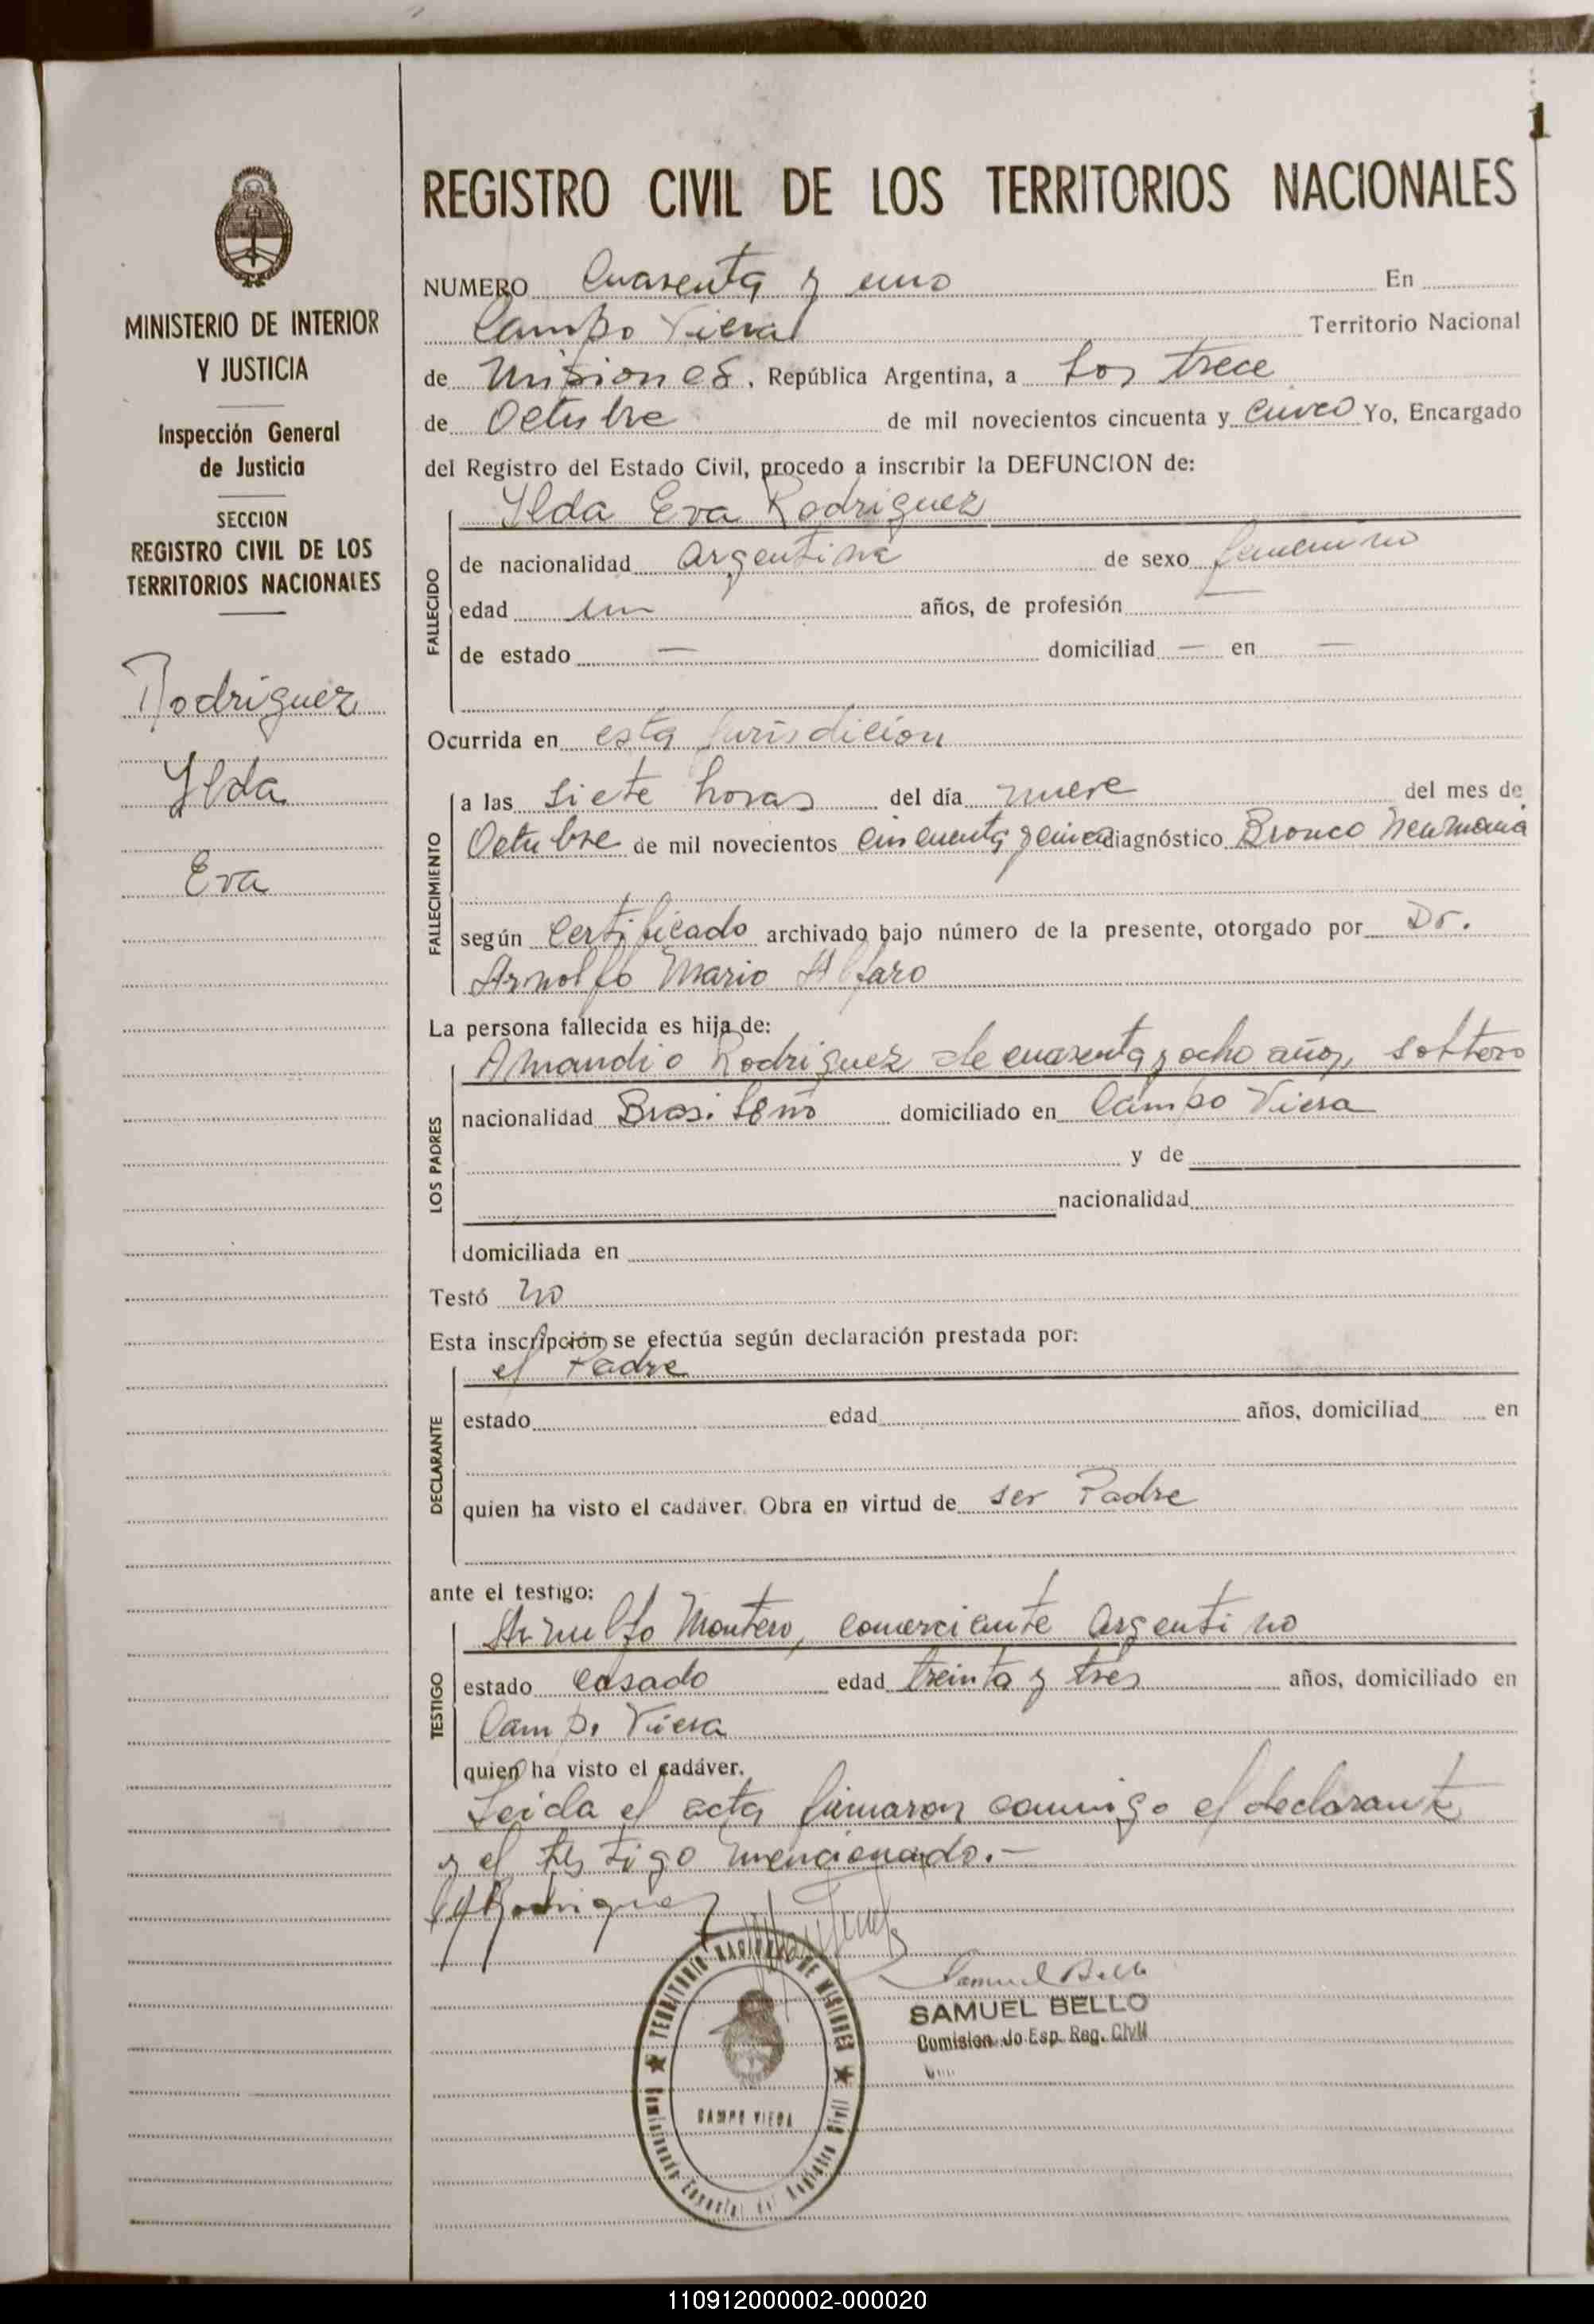 1
MINISTERIO DE INTERIOR
Y JUSTICIA
Inspección General
de Justicia
SECCION
REGISTRO CIVIL DE LOS
TERRITORIOS NACIONALES
Rodriguez
Ylda
Eva
REGISTRO CIVIL DE LOS TERRITORIOS NACIONALES
NUMERO Cuarenta y uno En
Campo Viera Territorio Nacional
de Misiones, República Argentina, a Los trece
de Octubre de mil novecientos cincuenta y cinco Yo, Encargado
del Registro del Estado Civil, procedo a inscribir la DEFUNCION de:
Ylda Eva Rodriguez
FALLECIDO
de nacionalidad Argentina de sexo femenino
edad un años, de profesión —
de estado — domiciliad — en —
Ocurrida en esta jurisdicion
FALLECIMIENTO
a las siete horas del día nueve del mes de
Octubre de mil novecientos cincuenta y cinco diagnóstico Bronco Neumonia
según Certificado archivado bajo número de la presente, otorgado por Dr.
Arnolfo Mario Alfaro
La persona fallecida es hija de:
LOS PADRES
Amandio Rodriguez de cuarenta y ocho años, soltero
nacionalidad Brasileño domiciliado en Campo Viera
y de
nacionalidad
domiciliada en
Testó no
Esta inscripción se efectúa según declaración prestada por:
DECLARANTE
el Padre
estado edad años, domiciliad en
quien ha visto el cadáver. Obra en virtud de ser Padre
ante el testigo:
TESTIGO
Arnulfo Montero, comerciante Argentino
estado casado edad treinta y tres años, domiciliado en
Campo Viera
quien ha visto el cadáver.
Leida el acta firmaron conmigo el declarante
y el testigo mencionado.-
Rodriguez
Samuel Bello
SAMUEL BELLO
Comisionado Esp. Reg. Civil
TERRITORIO NACIONAL DE MISIONES
CAMPO VIERA
Comisionado Especial del Registro Civil
110912000002-000020